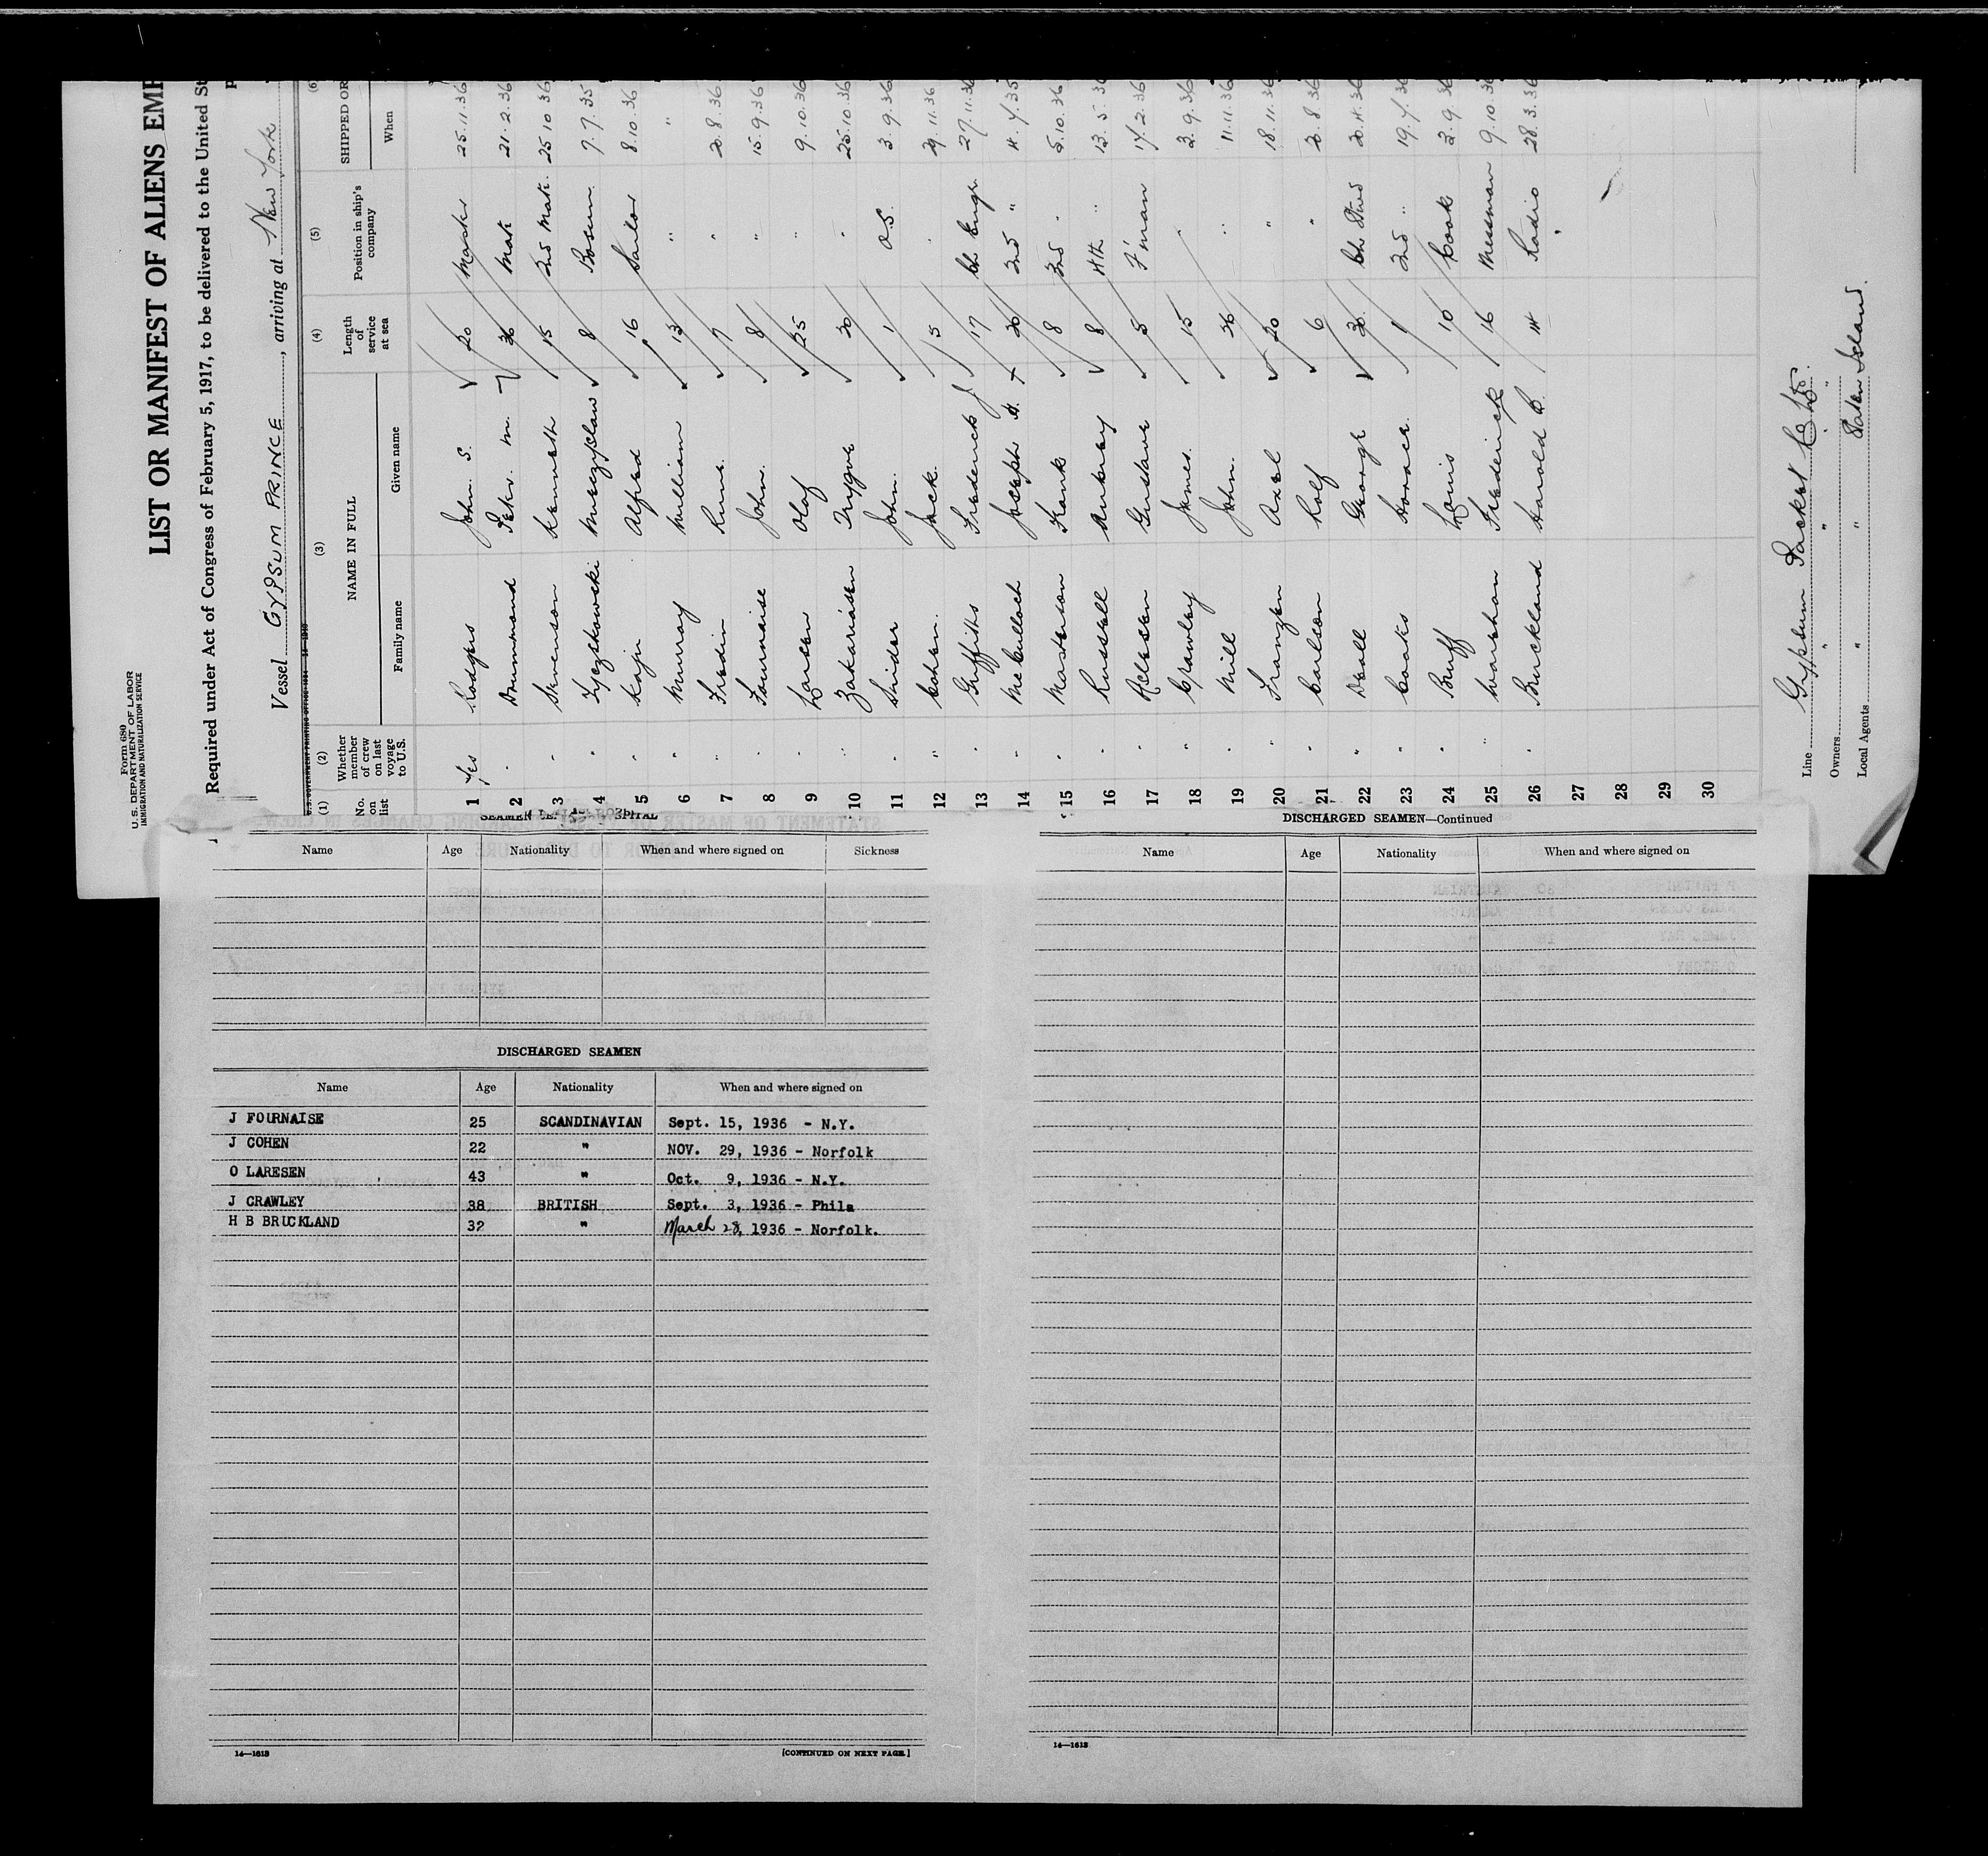 Form 680
U.S. DEPARTMENT OF LABOR
IMMIGRATION AND NATURALIZATION SERVICE
LIST OR MANIFEST OF ALIENS EMP
Required under Act of Congress of February 5, 1917, to be delivered to the United St
Vessel GYPSUM PRINCE, arriving at New York
(1) (2) (3) (4) (5) (6)
No. on list Whether member of crew on last voyage to U.S. NAME IN FULL Length of service at sea Position in ship's company SHIPPED OR
Family name Given name When
1 Yes Rodgers John. S. 20 Master 25.11.36
2 " Drummond Peter. M. 36 Mate 21.2.36
3 " Swenson Kenneth 15 2nd Mate. 25 10 36
4 " Tyczkowski Mieczyslaw 8 Bosun. 7.7.35
5 " Kaju Alfred 16 Sailor 8.10.36
6 " Murray William 13 " "
7 " Fredin Rune. 7 " 20.8.36
8 " Fournaise John. 8 " 15.9.36
9 " Larsen Olof 25 " 9.10.36
10 " Zakariasen Trygve 30 " 25.10.36
11 " Snider John. 1 O.S. 3.9.36
12 " Cohen. Jack. 5 " 29.11.36
13 " Griffiths Frederick J 17 Ch Engr. 27.11.36
14 " McCulloch Joseph H. 30 2nd " 4.7.35
15 " Masterson Frank 8 3rd " 5.10.36
16 " Russell Aubrey 8 4th " 13.5.36
17 " Gustave 5 F'man 17.2.36
18 " Crawley James. 15 " 3.9.36
19 " Mill John. 36 " 11.11.36
20 " Franzen Axel 20 " 18.11.36
21 " Carlson Rolf 6 " 20.8.36
22 " Deall George 30 Ch Stwd 20.4.36
23 " Cooks Horace. 1 2nd " 19.7.36
24 " Bruff Louis 10 Cook 3.9.36
25 " Warehan Frederick 16 Messman 9.10.36
26 " Bruckland Harold B. 14 Radio 28.3.36
27
28
29
30
Line Gypsum Packet Co Ltd.
Owners " " " "
Local Agents " " Staten Island.
Name Age Nationality When and where signed on Sickness
DISCHARGED SEAMEN
Name Age Nationality When and where signed on
J FOURNAISE 25 SCANDINAVIAN Sept. 15, 1936 - N.Y.
J COHEN 22 " NOV. 29, 1936 - Norfolk
O LARESEN 43 " Oct. 9, 1936 - N.Y.
J CRAWLEY 38 BRITISH Sept. 3, 1936 - Phila
H B BRUCKLAND 32 " March 28, 1936 - Norfolk.
14—1613 [CONTINUED ON NEXT PAGE.]
DISCHARGED SEAMEN—Continued
Name Age Nationality When and where signed on
14—1613